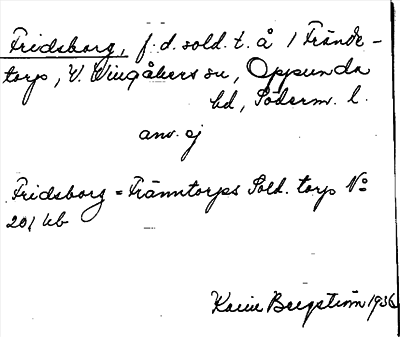 Fridsborg, f.d. sold. t. å 1 Frände-
torp, V. Vingåkers sn, Oppunda
hd, Söderm. l.
anv. ej
Fridsborg = Främntorps Sold. torp No
201 kb
Karin Bergström 1936